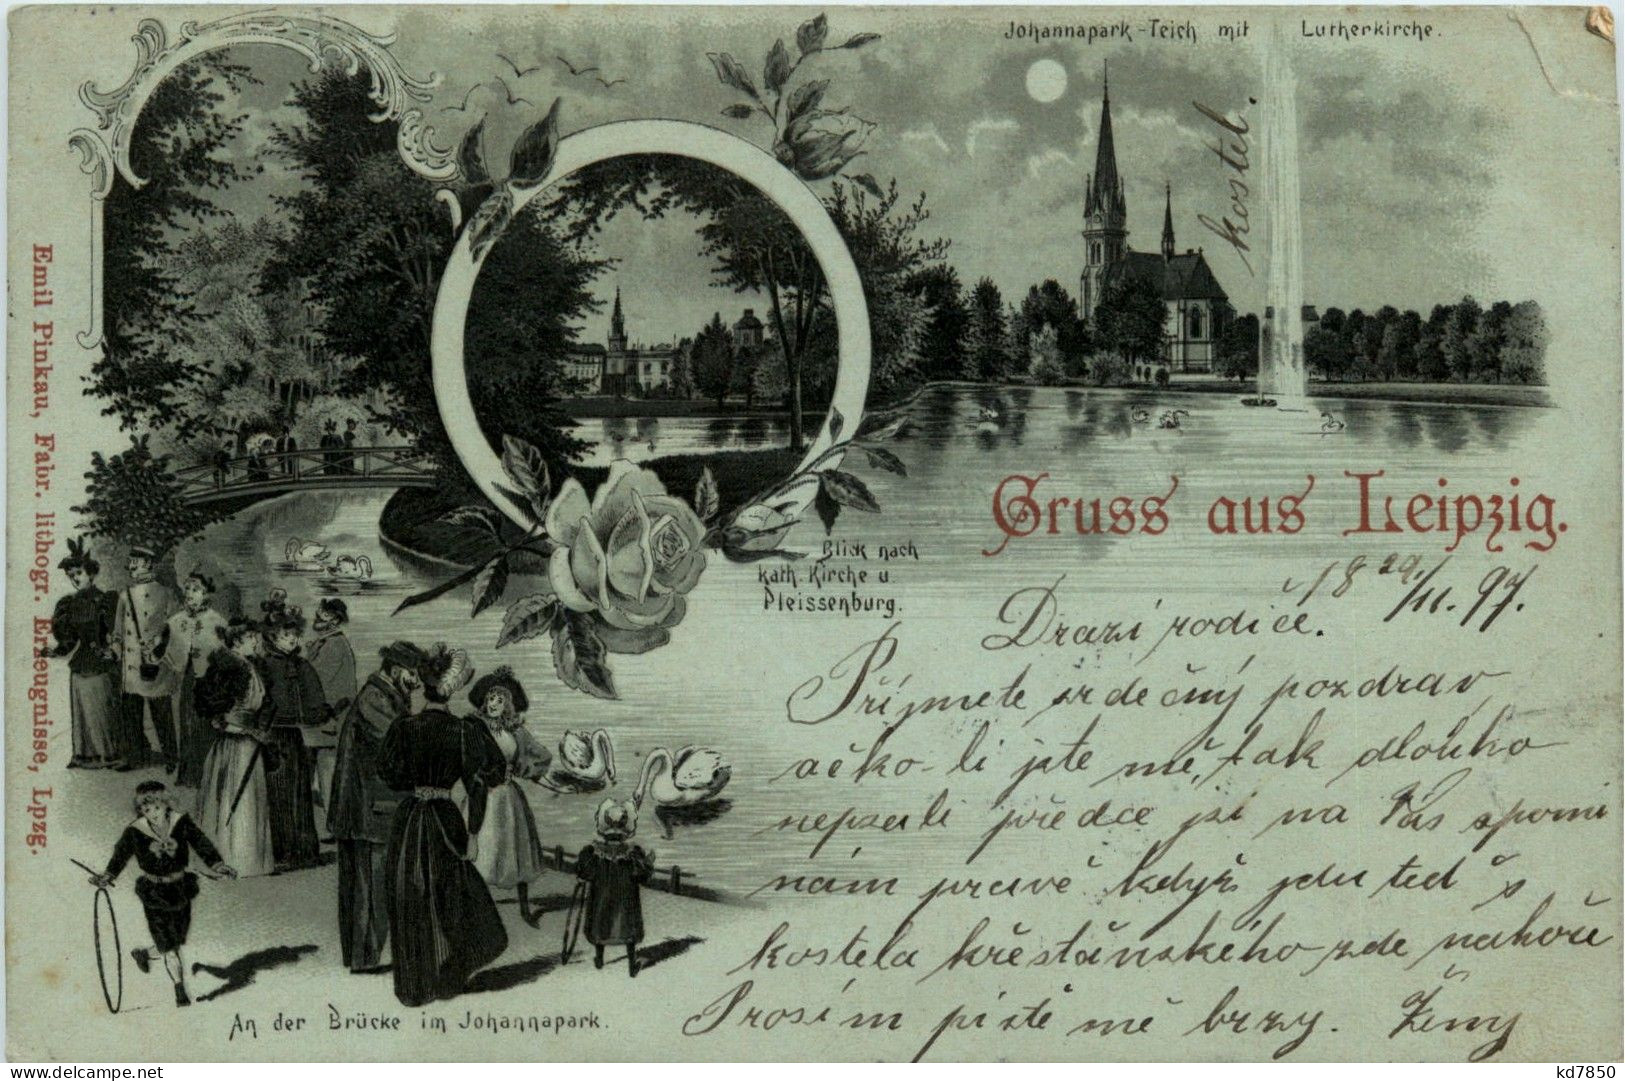 Johannapark-Teich mit Lutherkirche.
kostel.
Emil Pinkau, Fabr. lithogr. Erzeugnisse, Lpzg.
Gruss aus Leipzig.
Blick nach
kath. Kirche u.
Pleissenburg.
18 29/11. 97.
Drazí rodiče.
Příjmete srdečný pozdrav
ačko-li jste mě, tak dlouho
nepsali předce jsi na Vás spomi
nám pravě když jdu teď s
kostela křestǎnského zde nahoře
Prosím piště mě brzy.
An der Brücke im Johannapark.
kd7850